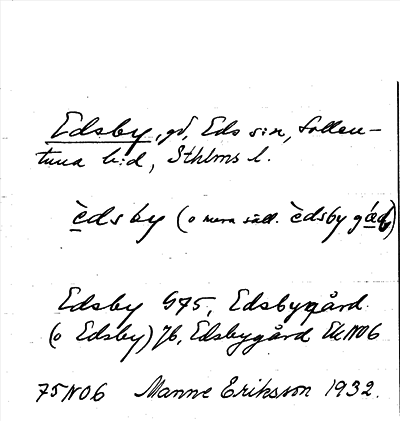 Edsby, gd, Eds sn, Sollen-
tuna hd, Sthlms l.
èdsby (o mera säll. èdsby
Edsby G75, Edsbygård
(o Edsby) Jb, Edsbygård Ek NO6
75NO6 Manne Eriksson 1932.